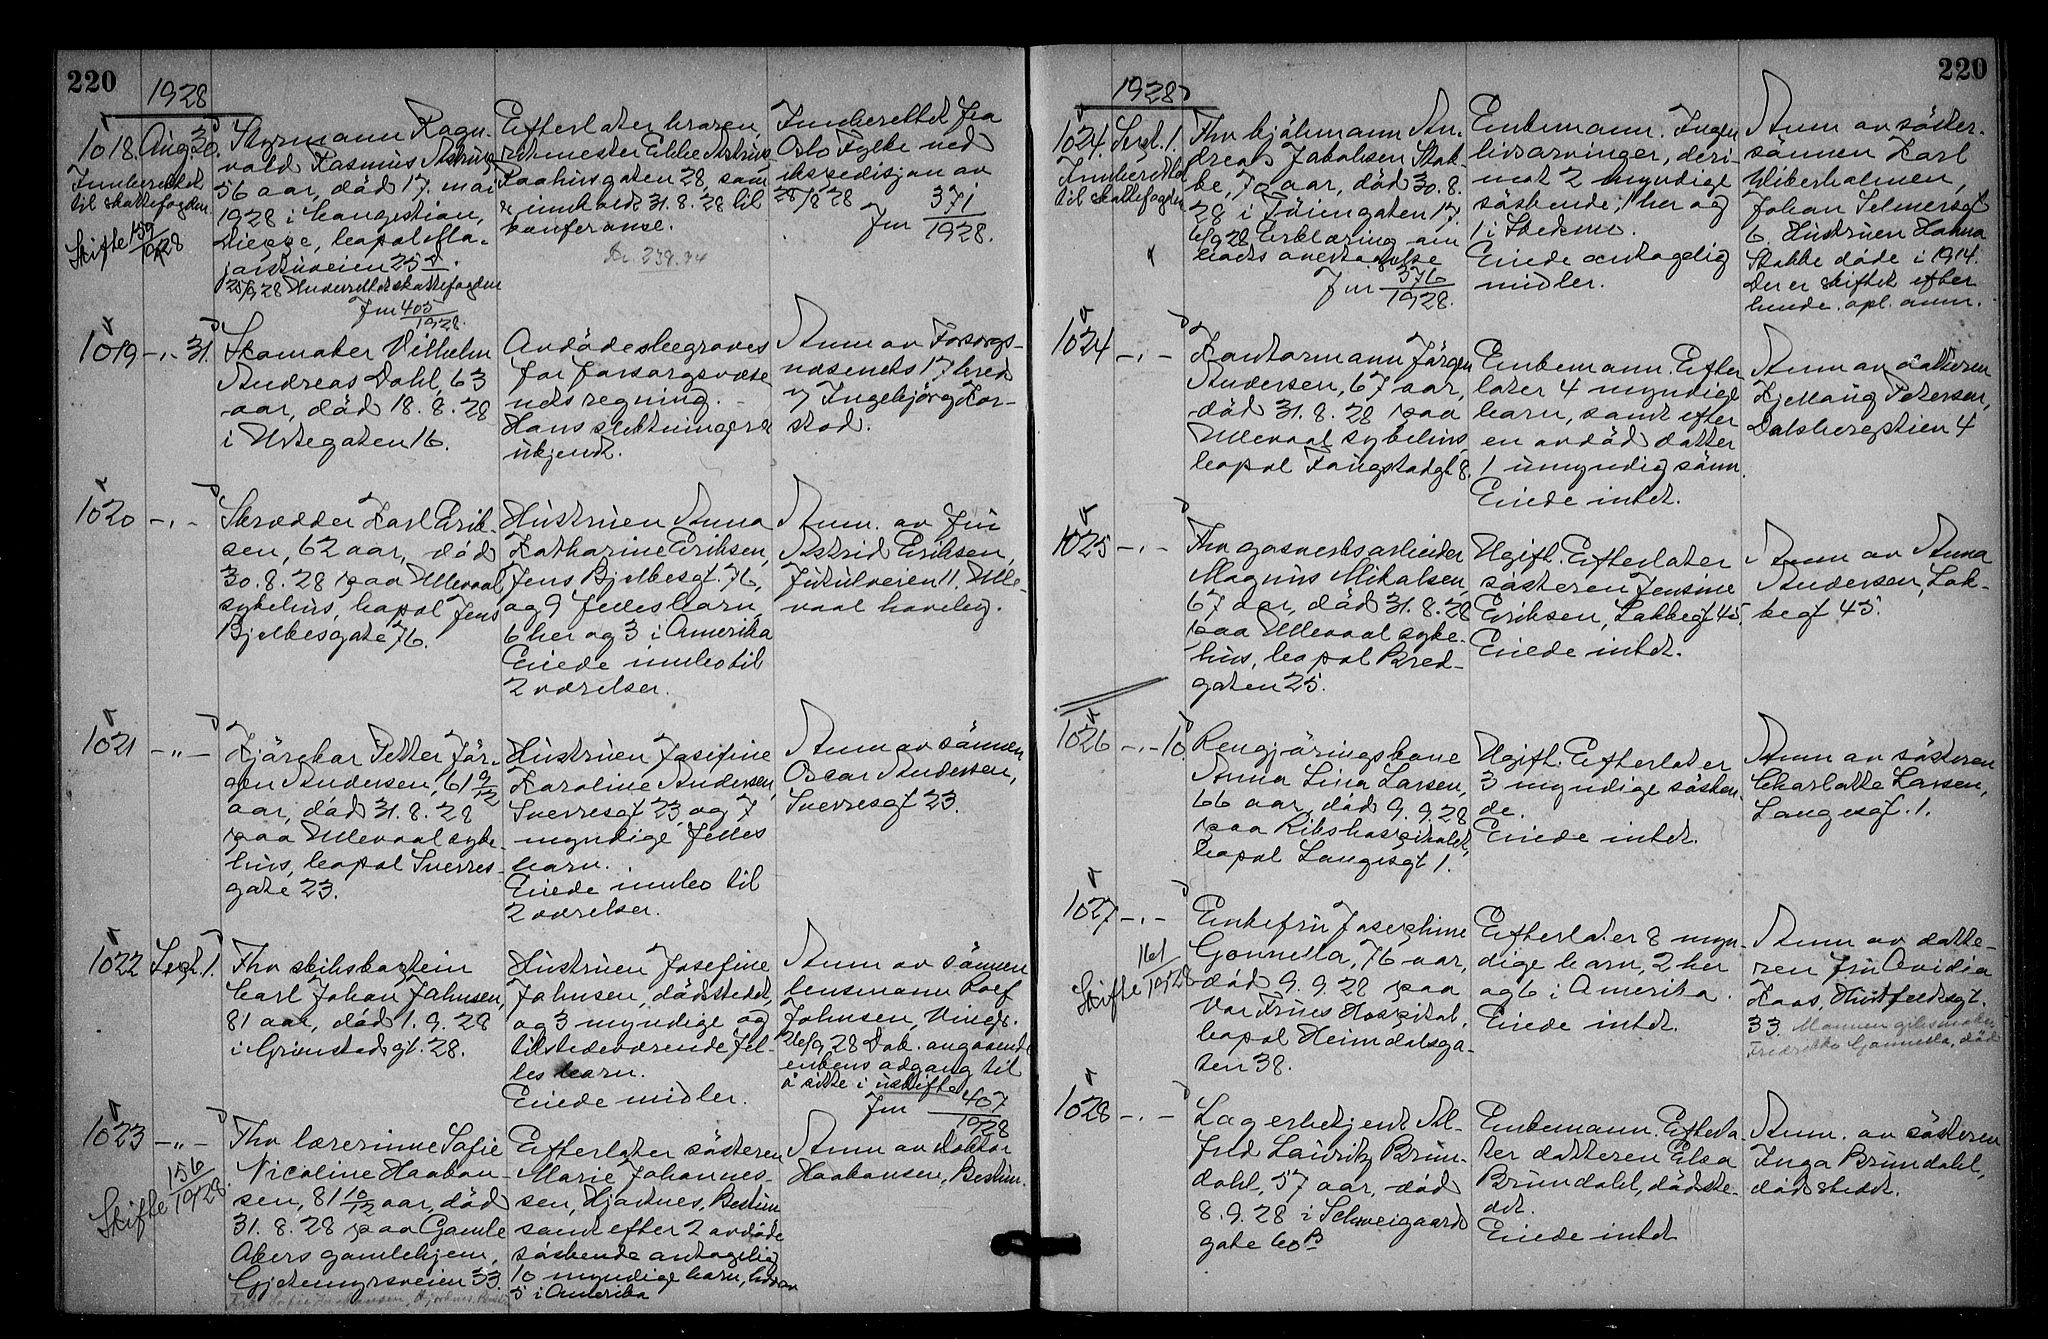 220
1928
1018. Aug. 30.
Innberettet
til skattefogden
Skifte 159/1928
Styrmann Ragn-
vald Rasmus Astrup
56 aar, död 17. mai
1928 i
Dieppe, bopæl
25
25/9 28 Underrettet skattefogden
Jnr 405/1928.
Efterlater broren,
Ebbe Astrup
28, som
er innkaldt 31.8.28 til
konferanse.
Innberettet fra
Oslo Fylke ved
ekspedisjon av
28/8 28
Jnr 371/1928.
1019 -,- 31.
Skomaker Vilhelm
Andreas Dahl, 63
aar, död 18. 8. 28
i Urtegaten 16.
Avdöde begraves
for forsorgsvæse
nets regning.
Hans slektninger er
ukjendt.
Anm av Forsorgs-
væsenets 17 kred
v/ Ingebjörg Kor-
stad.
1020 -,-
Skrædder Karl Erik-
sen, 62 aar, död
30. 8. 28 paa Ullevaal
sykehus, bopæl Jens
Bjelkesgate 76.
Hustruen Anna
Katharine Eriksen,
Jens Bjelkesgt. 76,
og 9 felles barn,
6 her og 3 i Amerika
Eiede innbo til
2 værelser.
Anm. av fru
Astrid Eriksen,
Jutulveien 11. Ulle-
vaal haveby.
1021 -"-
Kjörekar Petter Jör-
gen Andersen, 61 9/12
aar, död 31. 8. 28
paa Ullevaal syke-
hus, bopæl Sverres-
gate 23.
Hustruen Josefine
Karoline Andersen,
Sverresgt 23, og 7
myndige felles
barn.
Eiede innbo til
2 værelser.
Anm av sönnen
Oscar Andersen,
Sverresgt 23.
1022 Sept. 1.
Fhv skibskaptein
Carl Johan Johnsen,
81 aar, död 1. 9. 28
i Grimstadgt. 28.
Hustruen Josefine
Johnsen, dödsstedet,
og 3 myndige og
tilstedeværende fel-
les barn.
Eiede midler.
Anm av sönnen
lensmann Rolf
Johnsen,
26/9 28 Dok. angaaende
enkens adgang til
å sitte i uskifte
Jnr 407/1928
1023 -"-
Skifte 156/1928.
Fhv lærerinne Sofie
Nicoline Haakon-
sen, 81 10/12 aar, död
31. 8. 28 paa Gamle
Akers gamlehjem,
Gjetemyrsveien 33.
Efterlater söstren
Marie Johannes-
sen, Hjortnes, Bestum
samt efter 2 avdöde
söskende antagelig
10 myndige barn, hvorav
5 i Amerika
Anm av doktor
Haakonsen, Bestum.
220
1928
1024. Sept. 1.
Innberettet
til skattefogden
Fhv kjölmann An-
dreas Jakobsen Stok-
ke, 79 aar, död 30. 8.
28 i Töiengaten 17.
6/9 28 Erklæring om
boets overtagelse
Jnr 376/1928.
Enkemann. Ingen
livsarvinger, deri-
mot 2 myndige
söskende, 1 her og
1 i
Eiede antagelig
midler.
Anm av söster-
sönnen Karl
Wiberholmen,
Johan Selmersgt
6. Hustruen Hanna
Stokke döde i 1914.
Der er skiftet efter
hende, opl. anm.
1024 -,-
Kontormann Jörgen
Andersen, 67 aar,
död 31. 8. 28 paa
Ullevaal sykehus,
bopæl Fougstadgt 8.
Enkemann. Efter
later 4 myndige
barn, samt efter
en avdöd datter
1 umyndig sönn.
Eiede intet.
Anm av datteren
Kjellaug Petersen,
Dalsbergstien 4
1025 -,-
Fhv gasverksarbeider
Magnus Mikalsen,
67 aar, död 31. 8. 28
paa Ullevaal syke-
hus, bopæl Bred-
gaten 25.
Ugift. Efterlater
söstren Jensine
Eriksen, Lakkegt 45.
Eiede intet.
Anm av Anna
Andersen, Lak-
kegt 45.
1026 -,- 10.
Rengjöringskone
Anna Lina Larsen,
66 aar, död 9. 9. 28
paa Rikshospitalet,
bopæl Langesgt 1.
Ugift. Efterlater
3 myndige sösken-
de.
Eiede intet.
Anm av söstren
Charlotte Larsen,
Langesgt. 1.
1027 -,-
Skifte 161/1928
Enkefru Josephine
Gonnella, 76 aar,
död 9. 9. 28 paa
Vor Frues Hospital,
bopæl Heimdalsga-
ten 38.
Efterlater 8 myn-
dige barn, 2 her
og 6 i Amerika.
Eiede intet.
Anm av datte-
ren fru Ovidia
Haas, Huitfeldtsgt.
33. Mannen gibsmaker
Fredrikko Gonnella, död
1028 -,-
Lagerbetjent Al-
fred Lauritz Brun-
dahl, 57 aar, död
8. 9. 28 i Schweigaards
gate 60 B
Enkemann. Efterla-
ter datteren Elsa
Brundahl, dödste-
det.
Eiede intet
Anm. av söstren
Inga Brundahl,
dödsstedet.